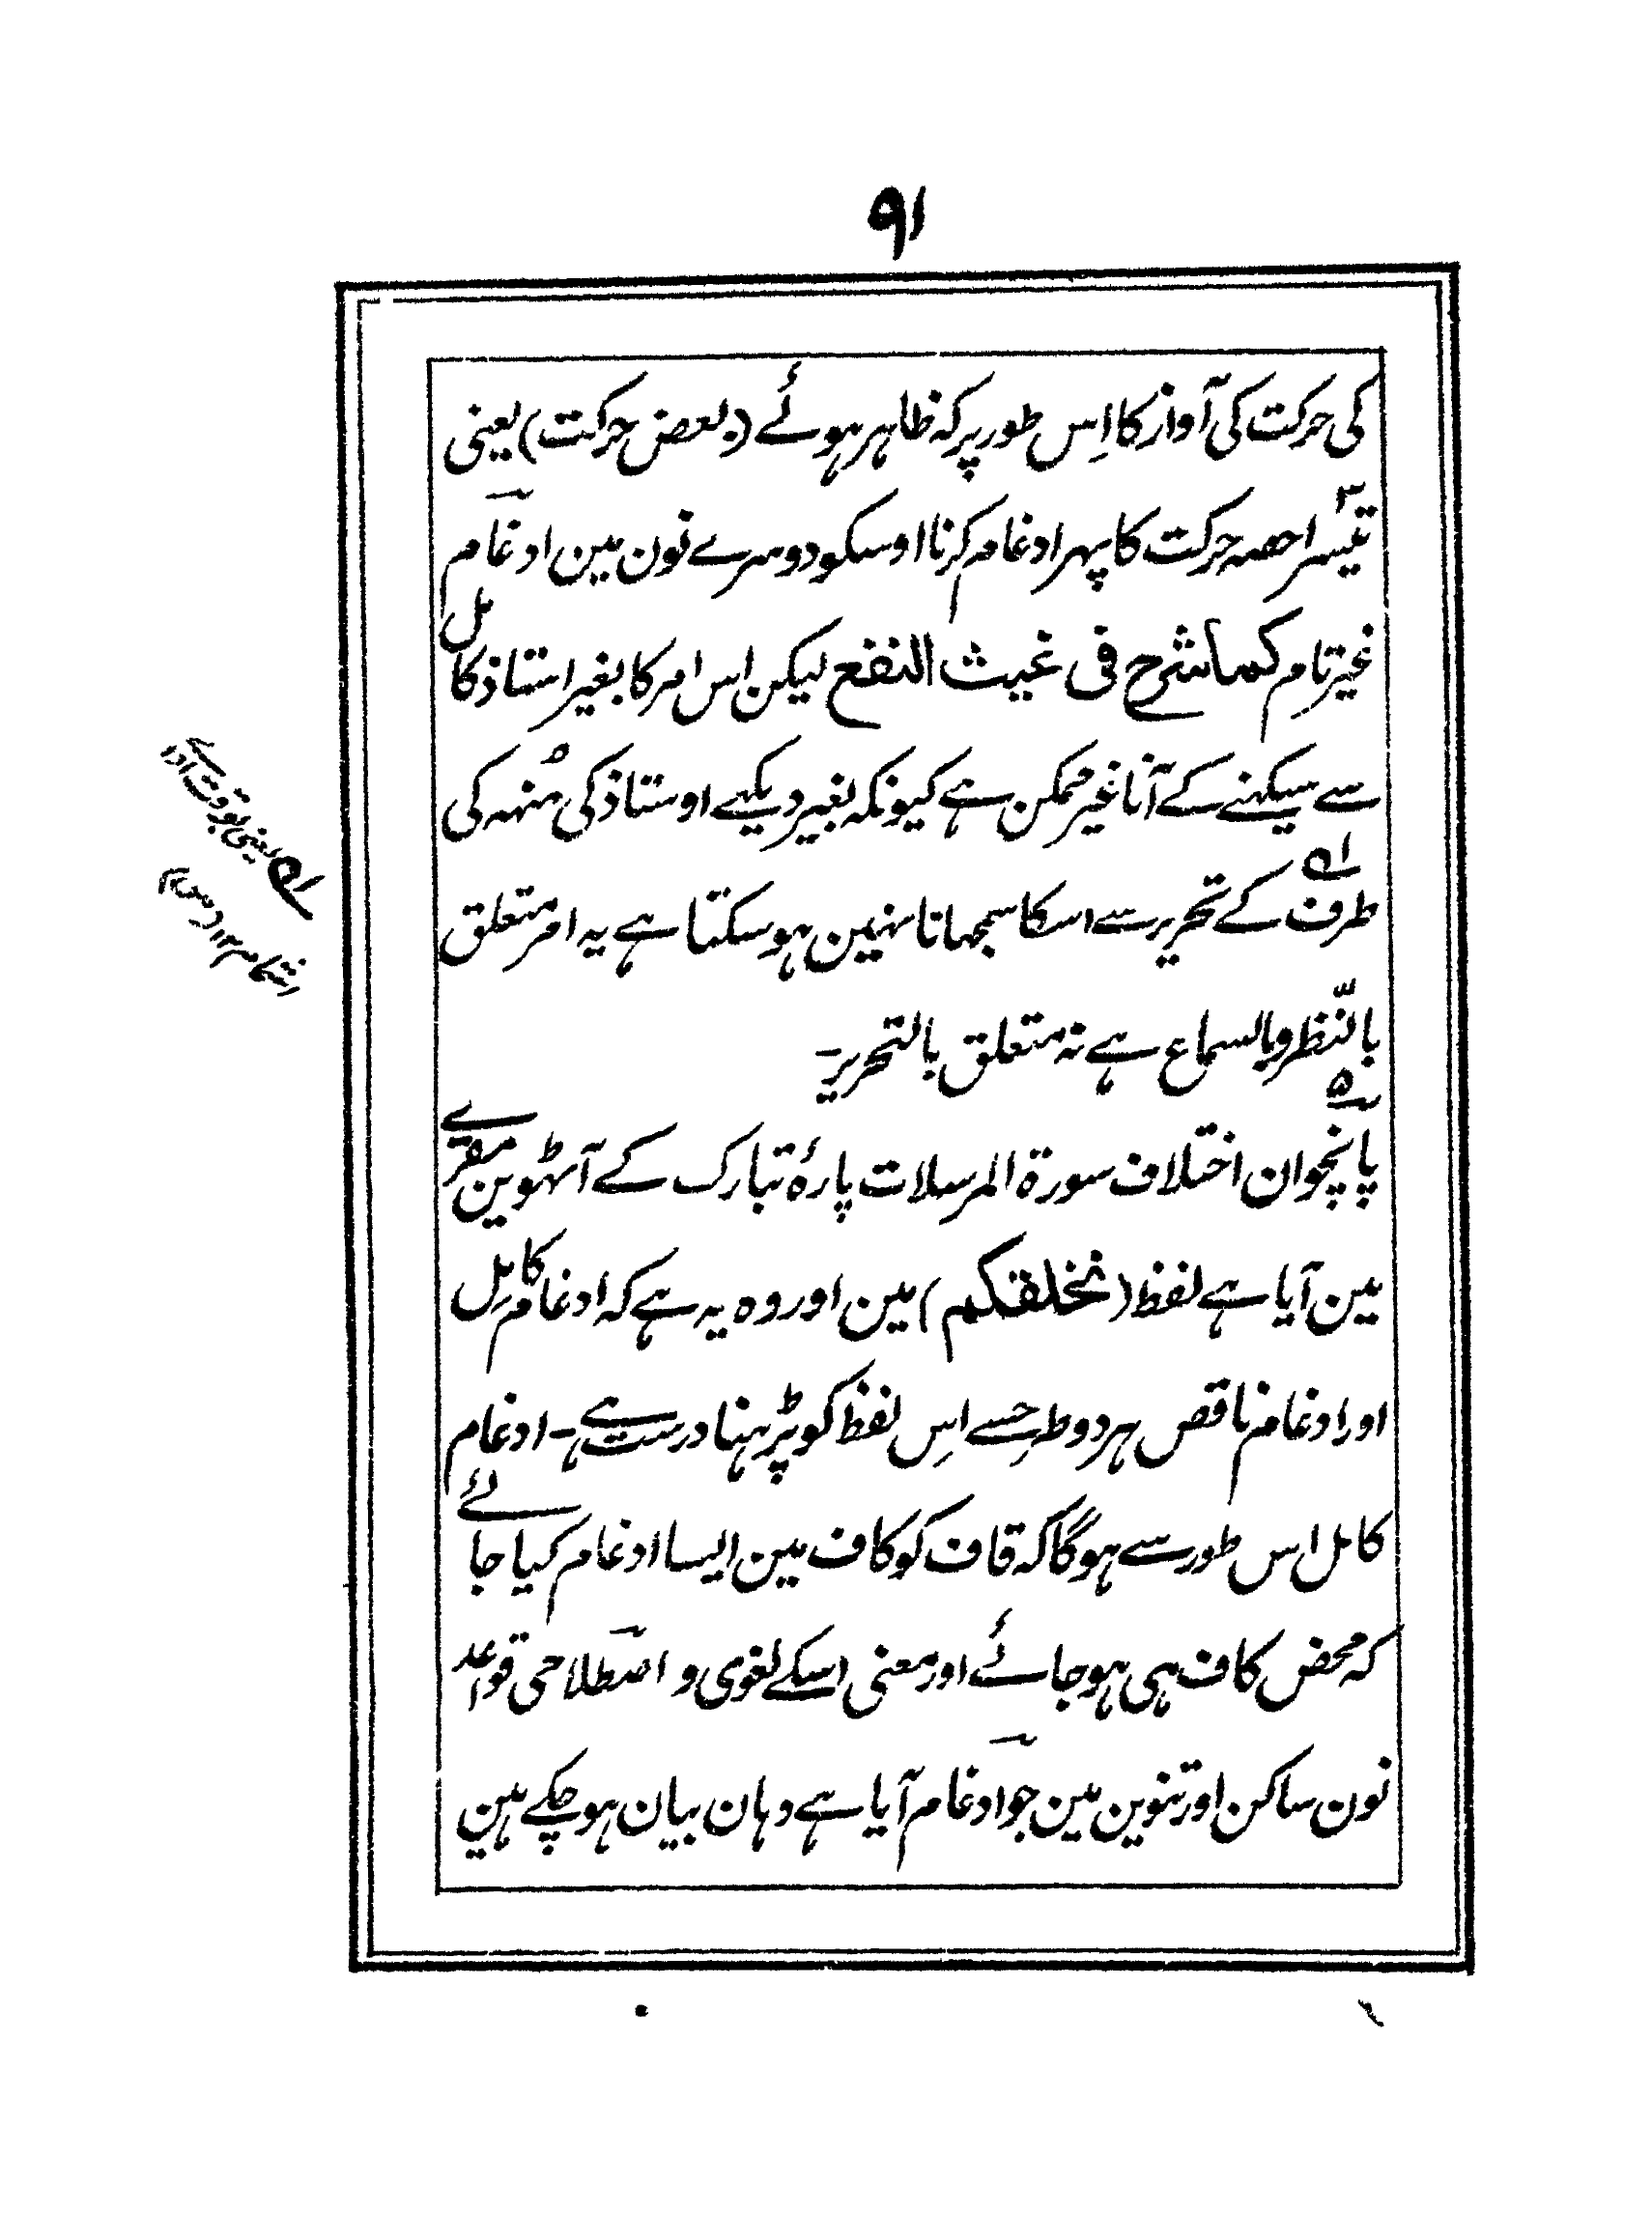 ۹۱
کی حرکت کی آواز کا اِس طور پر کہ ظاہر ہوئے (بعض حرکت) یعنی
تیسرا حصہ حرکت کا پہر ادغام کرنا اوسکو دوسرے نون مین ادغام
غیر تام کما شرح فی غیث النفع لیکن اس امر کا بغیر استاذ کامل
سے سیکہنے کے آنا غیر ممکن ہے کیونکہ بغیر دیکہے اوستاذ کی منہہ کی
طرف کے تحریر سے اسکا سمجہانا نہین ہو سکتا ہے یہ امر متعلق
بالنّظر وبالسماع ہے نہ متعلق بالتحریر۔
پانچوان اختلاف سورۃ المرسلات پارۂ تبارک کے آٹہوین مقرے
مین آیا ہے لفظ (نخلقکم) مین اور وہ یہ ہے کہ ادغام کامِل
اور ادغام ناقص ہر دو طرحسے اِس لفظ کو پڑہنا درست ہے۔ ادغام
کامل اس طور سے ہوگا کہ قاف کو کاف مین ایسا ادغام کیا جائے
کہ محض کاف ہی ہو جائے اور معنی اسکے لغوی و اصطلاحی قواعد
نون ساکن اور تنوین مین جو ادغام آیا ہے وہان بیان ہو چکے ہین
۵۱ یعنی بوقت ادائے
اشمام ۱۲ (س)